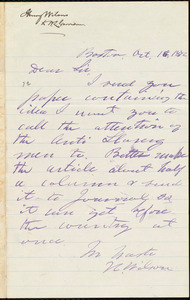 Henry Wilson
to W L Garrison
Boston Oct. 1
Dear Sir,
I send you
paper containing the
idea I want you to
call the attention of
the Anti Slavery
men to. Better make
the article about half
a column & send
it to Journal so
it can get before
the country at
once
In haste
H Wilson